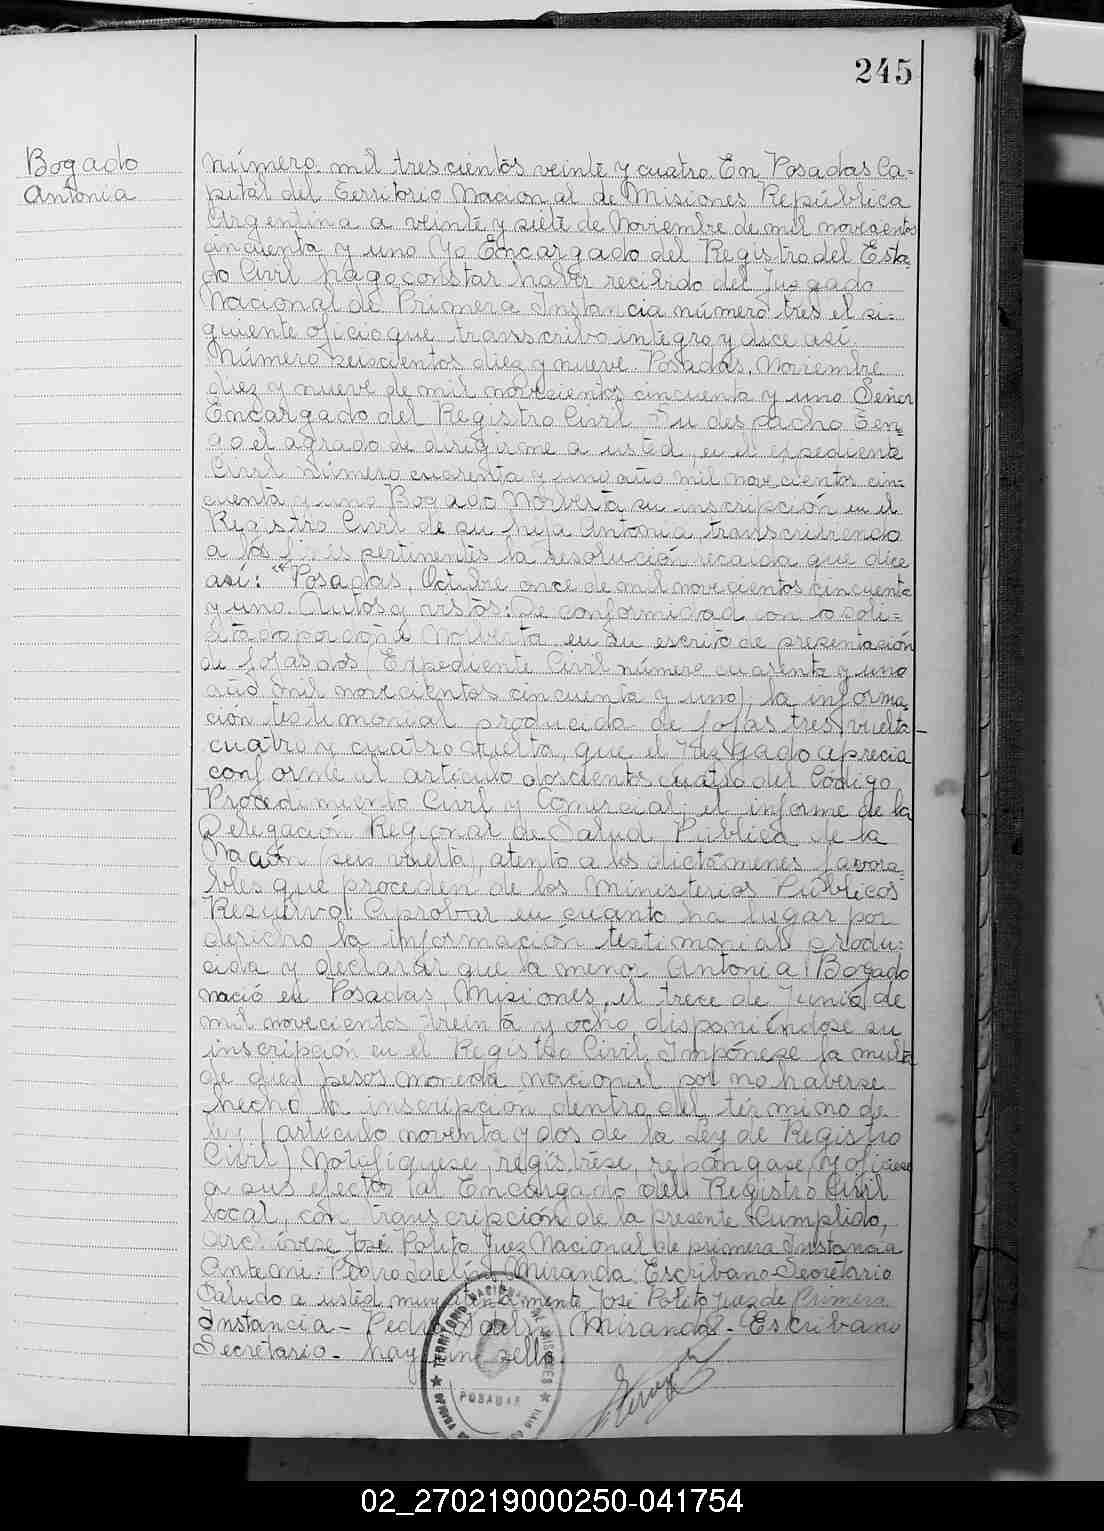 245
Bogado
Antonia
Número mil trescientos veinte y cuatro. En Posadas Ca-
pital del Territorio Nacional de Misiones República
Argentina a veinte y siete de Noviembre de mil novecientos
cincuenta y uno Yo Encargado del Registro del Esta-
do Civil hago constar haber recibido del Juzgado
Nacional de Primera Instancia número tres el si-
guiente oficio que transcribo integro y dice así.
Número seiscientos diez y nueve. Posadas, Noviembre
diez y nueve de mil novecientos cincuenta y uno Señor
Encargado del Registro Civil Su despacho Ten-
go el agrado de dirigirme a usted, en el expediente
Civil número cuarenta y uno año mil novecientos cin-
cuenta y uno Bogado Norberta su inscripción en el
Registro Civil de su hija Antonia, transcribiendo
a los fines pertinentes la resolución recaida que dice
así: "Posadas, Octubre once de mil novecientos cincuenta
y uno. Autos y vistos: De conformidad con lo soli-
citado por doña Norberta en su escrito de presentación
de fojas dos (Expediente Civil número cuarenta y uno
año mil novecientos cincuenta y uno), la informa-
ción testimonial producida de fojas tres vuelta
cuatro y cuatro vuelta, que el Juzgado aprecia
conforme al artículo doscientos cuatro del Código
Procedimiento Civil y Comercial; el informe de la
Delegación Regional de Salud Pública de la
Nación (seis vuelta), atento a los dictámenes favora-
bles que proceden de los Ministerios Públicos
Resuelvo: Aprobar en cuanto ha lugar por
derecho la información testimonial produ-
cida y declarar que la menor Antonia Bogado
nació en Posadas, Misiones, el trece de Junio de
mil novecientos treinta y ocho, disponiéndose su
inscripción en el Registro Civil. Impónese la multa
de diez pesos moneda nacional por no haberse
hecho la inscripción dentro del término de
ley (artículo noventa y dos de la Ley de Registro
Civil) Notifíquese, regístrese, repóngase y ofíciese
a sus efectos al Encargado del Registro Civil
local, con transcripción de la presente. Cumplido,
archívese José Polito Juez Nacional de primera Instancia
Ante mi: Pedro Idelin Miranda. Escribano Secretario
Saludo a usted muy atentamente José Polito Juez de Primera
Instancia - Pedro Idelin Miranda - Escribano
Secretario - hay un sello.
TERRITORIO NACIONAL DE MISIONES
POSADAS
02_270219000250-041754